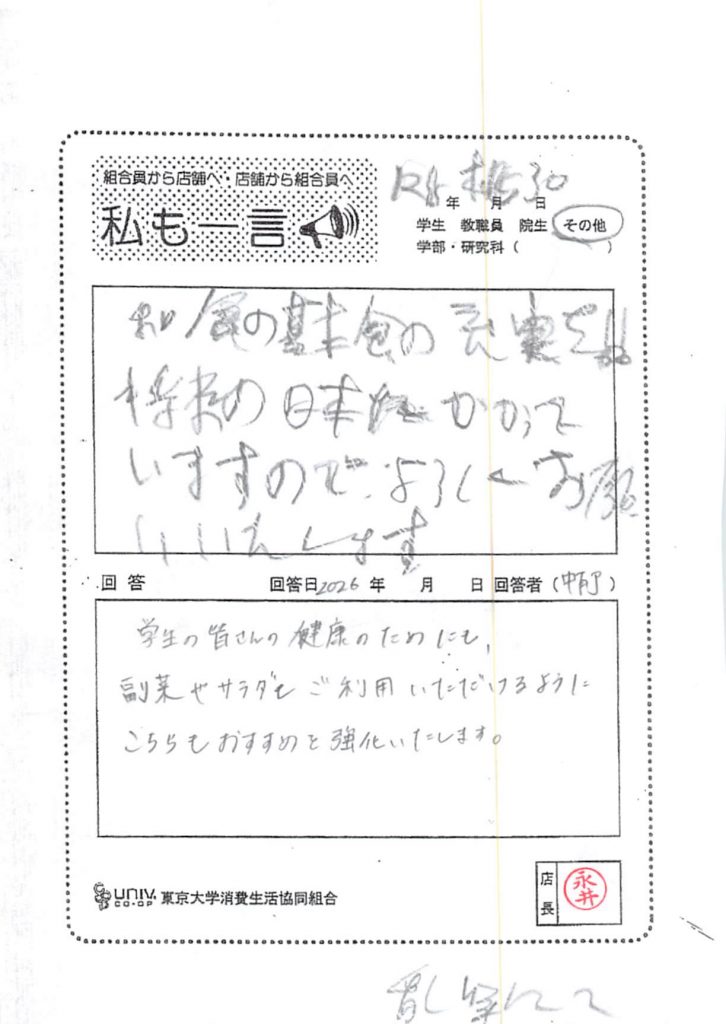 組合員から店舗へ・店舗から組合員へ
私も一言
年 月 日
学生 教職員 院生 その他
学部・研究科（ ）
和食の基本食の充実を!!
将来の日本がかかって
いますので、よろしくお願
いいたします
回答 回答日2026年 月 日 回答者（ ）
学生の皆さんの健康のためにも、
副菜やサラダもご利用いただけるように
こちらもおすすめと強化いたします。
UNIV. CO-OP 東京大学消費生活協同組合
店長 永井
乱筆にて